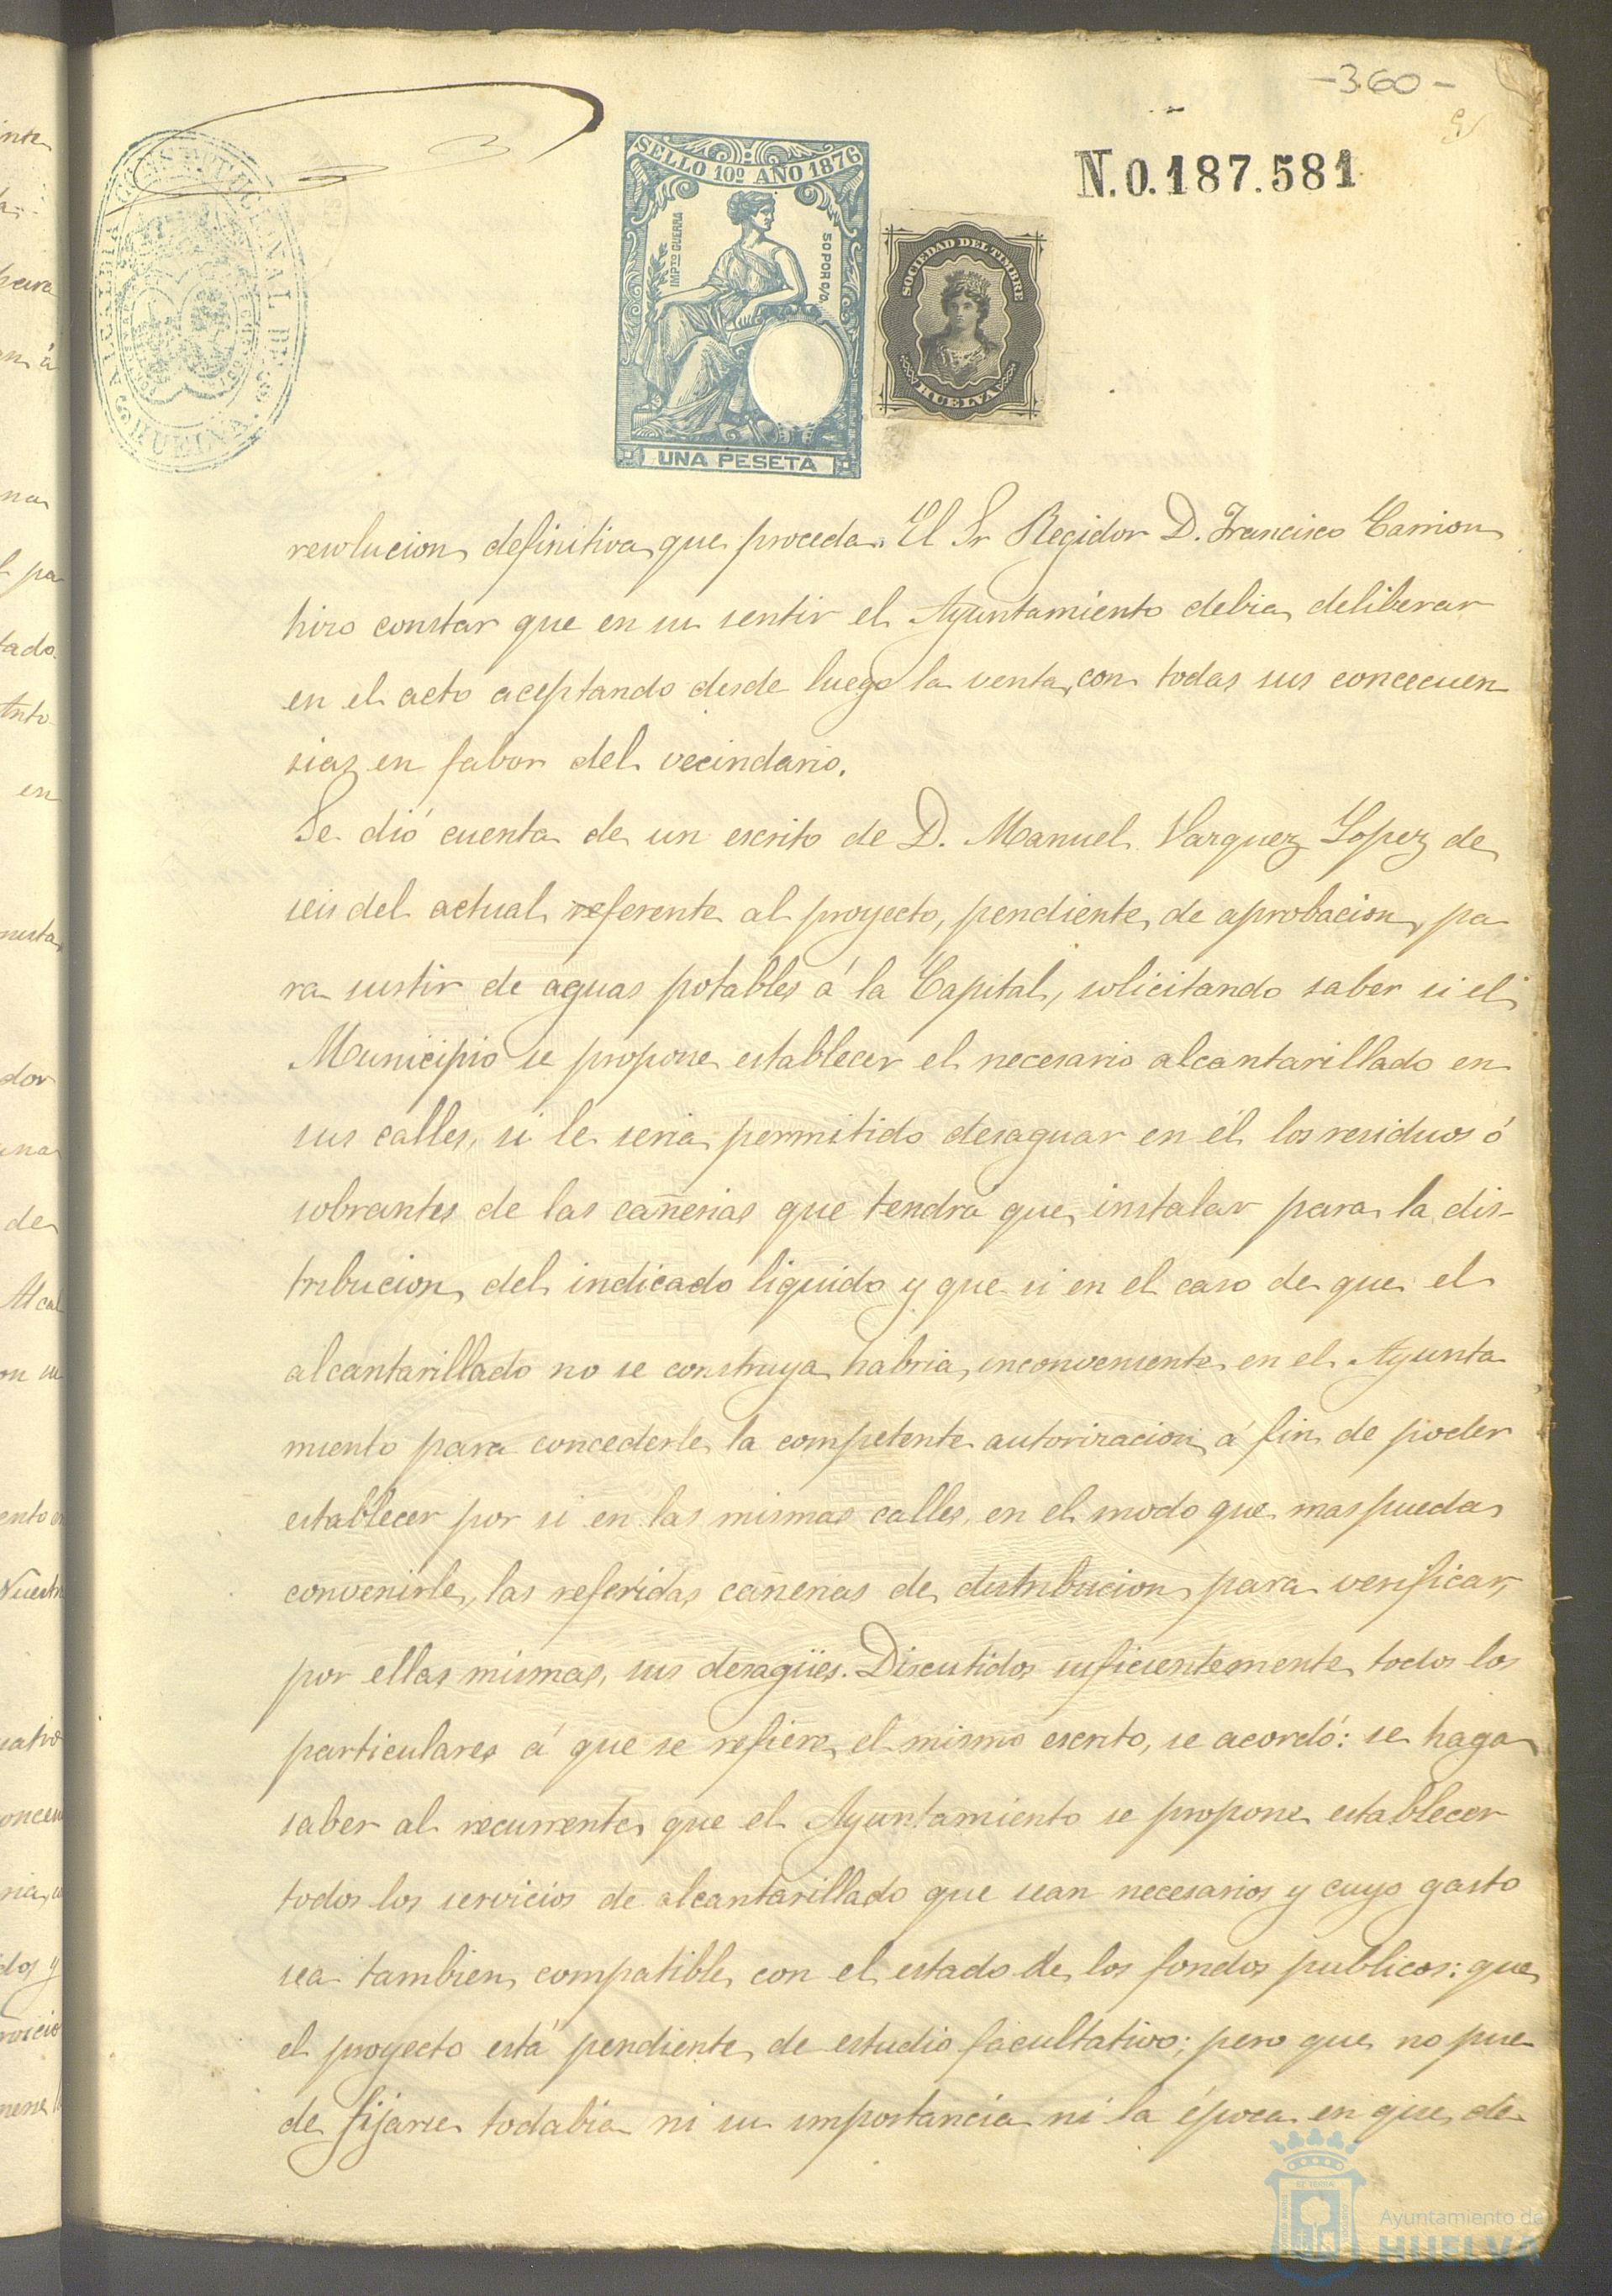 -360-
N.0.187.581
SELLO 10º AÑO 1876
IMPTO GUERRA
50 POR C/O
UNA PESETA
SOCIEDAD DEL TIMBRE
HUELVA
ALCALDIA CONSTITUCIONAL DE
HUELVA
resolucion definitiva que proceda. El Sr Regidor D. Francisco Carrion
hizo constar que en su sentir el Ayuntamiento debia deliberar
en el acto aceptando desde luego la venta con todas sus concecuen
sias en fabor del vecindario.
Se dió cuenta de un escrito de D. Manuel Vazquez Lopez de
seis del actual referente al proyecto, pendiente de aprobacion, pa
ra surtir de aguas potables á la Capital, solicitando saber si el
Municipio se propone establecer el necesario alcantarillado en
sus calles, si le seria permitido desaguar en él los residuos ó
sobrantes de las cañerias que tendrá que instalar para la dis-
tribucion del indicado liquido y que si en el caso de que el
alcantarillado no se construya habria inconveniente en el Ayunta
miento para concederle la competente autorizacion á fin de poder
establecer por si en las mismas calles, en el modo que mas pueda
convenirle, las referidas cañerias de distribucion para verificar,
por ellas mismas, sus desagües. Discutidos suficientemente todos los
particulares á que se refiere el mismo escrito, se acordó: se haga
saber al recurrente que el Ayuntamiento se propone establecer
todos los servicios de alcantarillado que sean necesarios y cuyo gasto
sea tambien compatible con el estado de los fondos publicos: que
el proyecto está pendiente de estudio facultativo; pero que no pue
de fijarse todabia ni su importancia ni la época en que de
Ayuntamiento de
HUELVA